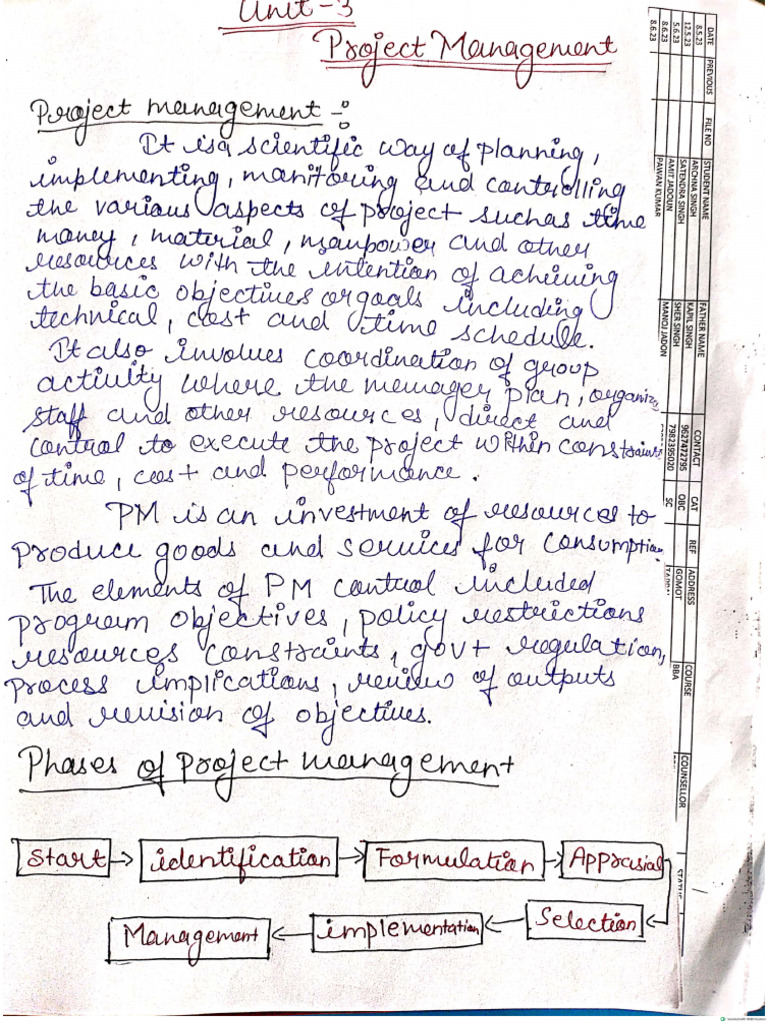 Unit-3
Project Management
Project management -:
It is a scientific way of planning,
implementing, manitoring and controlling
the various aspects of project such as time
money, material, manpower and other
resources with the intention of achieving
the basic objectives or goals including
technical, cost and time schedule.
It also involves coordination of group
activity where the manager plan, organize,
staff and other resources, direct and
control to execute the project within constraints
of time, cost and performance.
PM is an investment of resources to
produce goods and services for consumption
The elements of PM control included
program objectives, policy restrictions
resources constraints, govt regulation,
process implications, review of outputs
and revision of objectives.
Phases of project management
Start
identification
Formulation
Apprasial
Selection
implementation
Management
DATE PREVIOUS FILE NO STUDENT NAME FATHER NAME CONTACT CAT REF ADDRESS COURSE COUNSELLOR
8.5.23 ARCHNA SINGH KAPIL SINGH 9627472795 OBC GOMOT BBA
12.5.23 SATENDRA SINGH SHER SINGH 7982395020 SC
5.6.23 AMIT JADOUN MANOJ JADON
8.6.23 PAWAN KUMAR
8.6.23